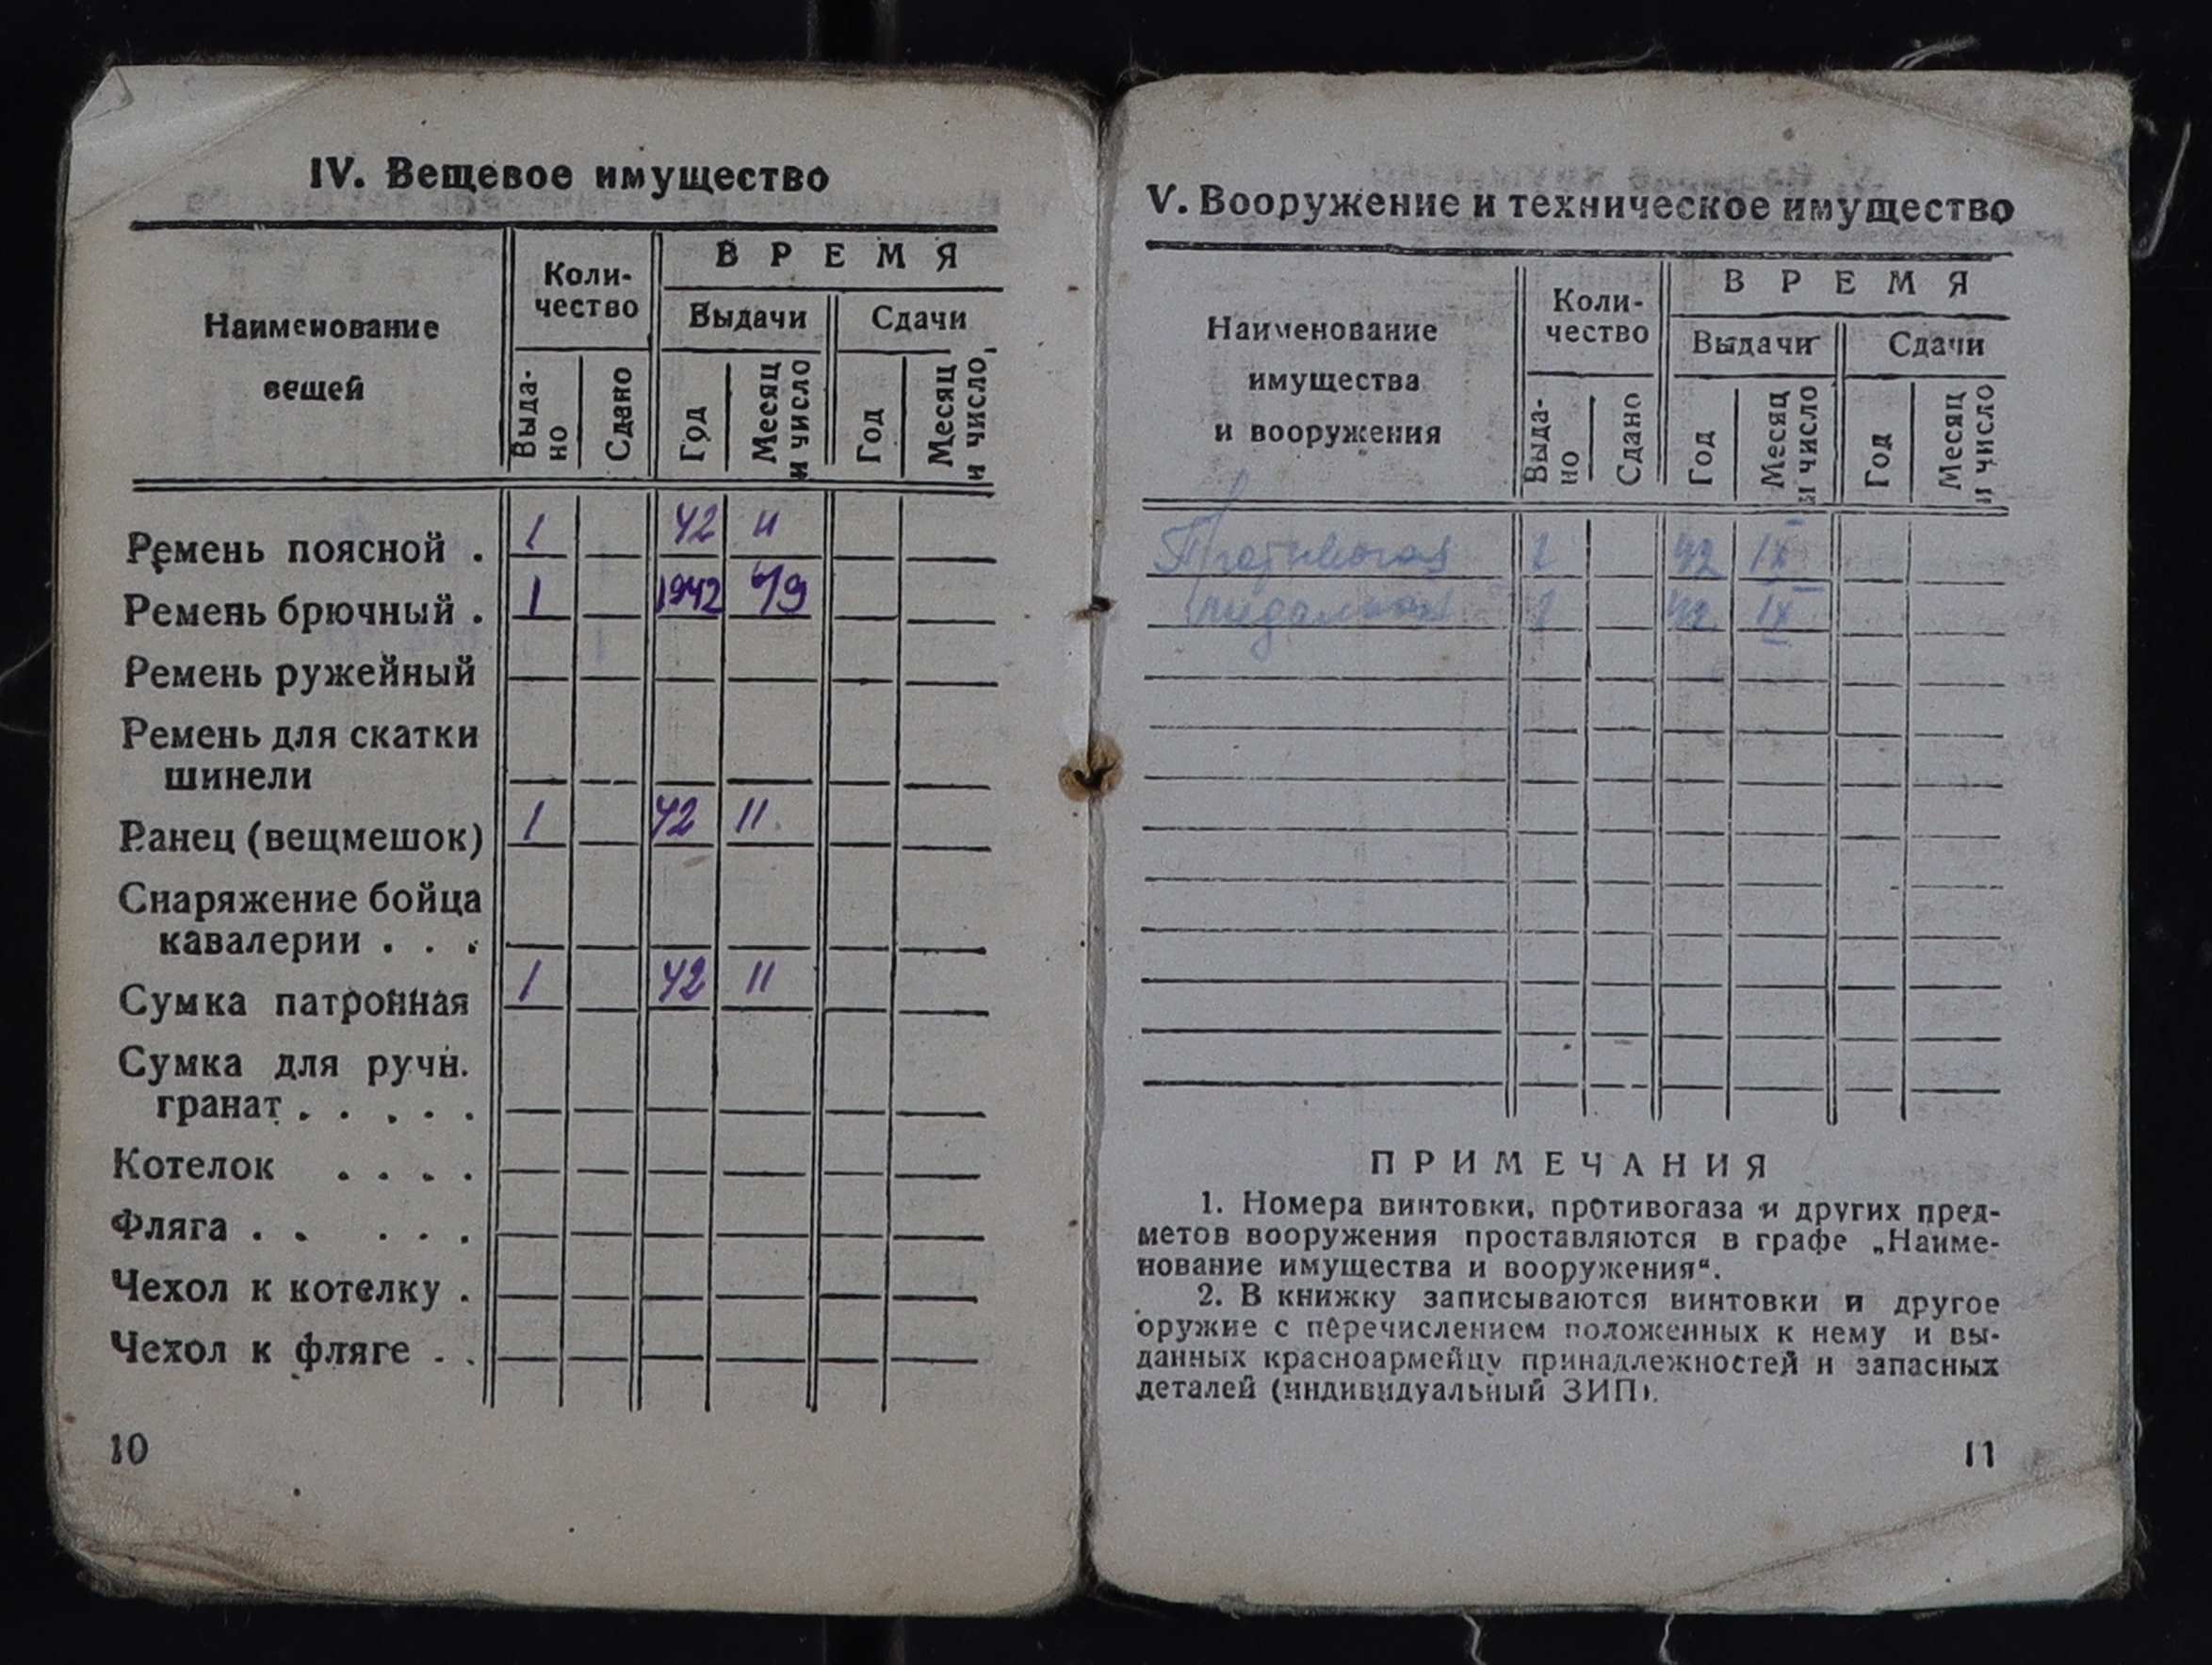 IV. Вещевое имущество
Наименование вещей
Коли-
чество
ВРЕМЯ
Выдачи
Сдачи
Выда-
но
Сдано
Год
Месяц
и число
Год
Месяц
и число
Ремень поясной . 1 42 11
Ремень брючный . 1 1942 6/9
Ремень ружейный
Ремень для скатки
шинели
Ранец (вещмешок) 1 42 11
Снаряжение бойца
кавалерии . . .
Сумка патронная 1 42 11
Сумка для ручн.
гранат . . . . .
Котелок . . . .
Фляга . . . . .
Чехол к котелку .
Чехол к фляге . .
10
V. Вооружение и техническое имущество
Наименование
имущества
и вооружения
Коли-
чество
ВРЕМЯ
Выдачи
Сдачи
Выда-
но
Сдано
Год
Месяц
и число
Год
Месяц
и число
Противогаз 1 42 IX
1 42 IX
ПРИМЕЧАНИЯ
1. Номера винтовки, противогаза и других пред-
метов вооружения проставляются в графе „Наиме-
нование имущества и вооружения“.
2. В книжку записываются винтовки и другое
оружие с перечислением положенных к нему и вы-
данных красноармейцу принадлежностей и запасных
деталей (индивидуальный ЗИП).
11